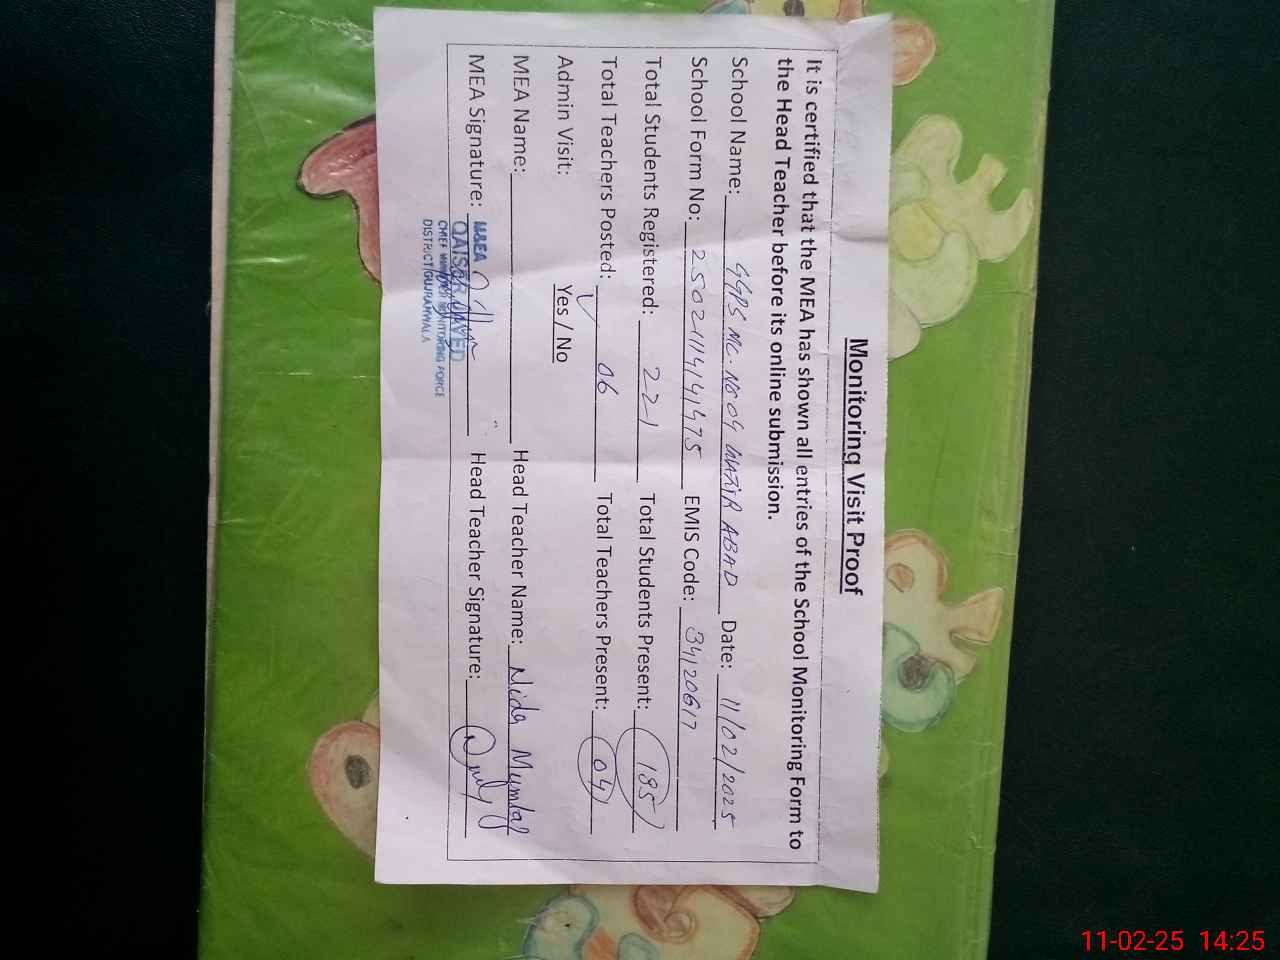 Monitoring Visit Proof
It is certified that the MEA has shown all entries of the School Monitoring Form to
the Head Teacher before its online submission.
School Name: GGPS MC. No 04 WAZIR ABAD Date: 11/02/2025
School Form No: EMIS Code: 34120617
Total Students Registered: 221 Total Students Present: 185
Total Teachers Posted: 06 Total Teachers Present: 04
Admin Visit: Yes / No
MEA Name: Head Teacher Name: Nida Mumtaz
MEA Signature: Head Teacher Signature:
M&EA
QAISAR JAVED
CHIEF MINISTER MONITORING FORCE
DISTRICT GUJRANWALA
11-02-25 14:25